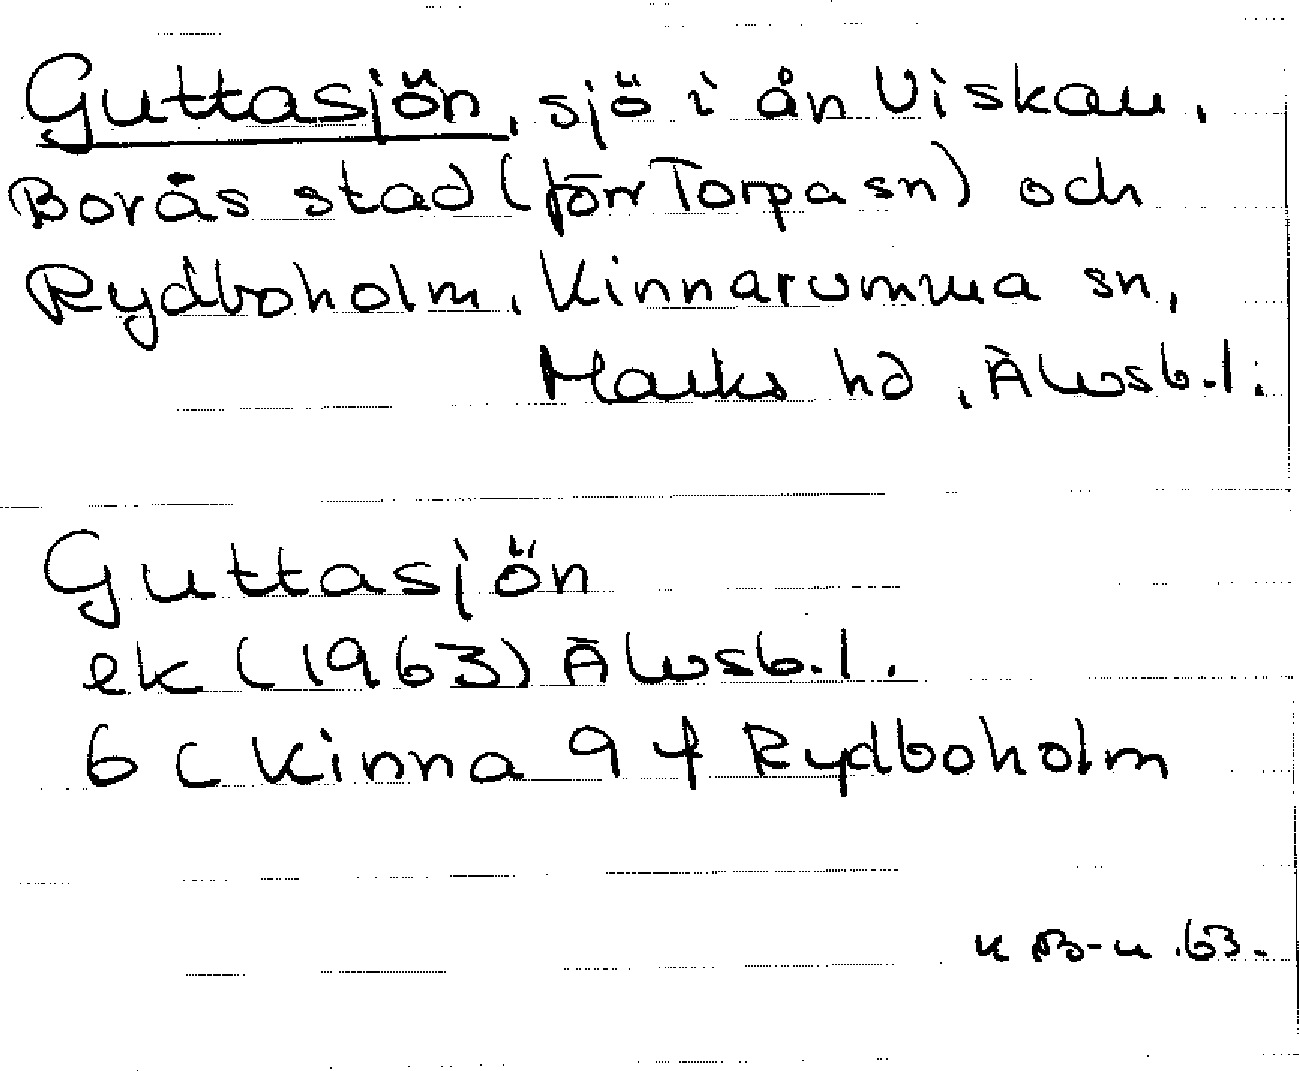 Guttasjön, sjö i ån Viskan,
Borås stad (förr Torpa sn) och
Rydboholm, Kinnarumma sn,
Marks hd, Älvsb.l.
Guttasjön
ek (1963) Älvsb.l.
6 C Kinna 9 f Rydboholm
63.